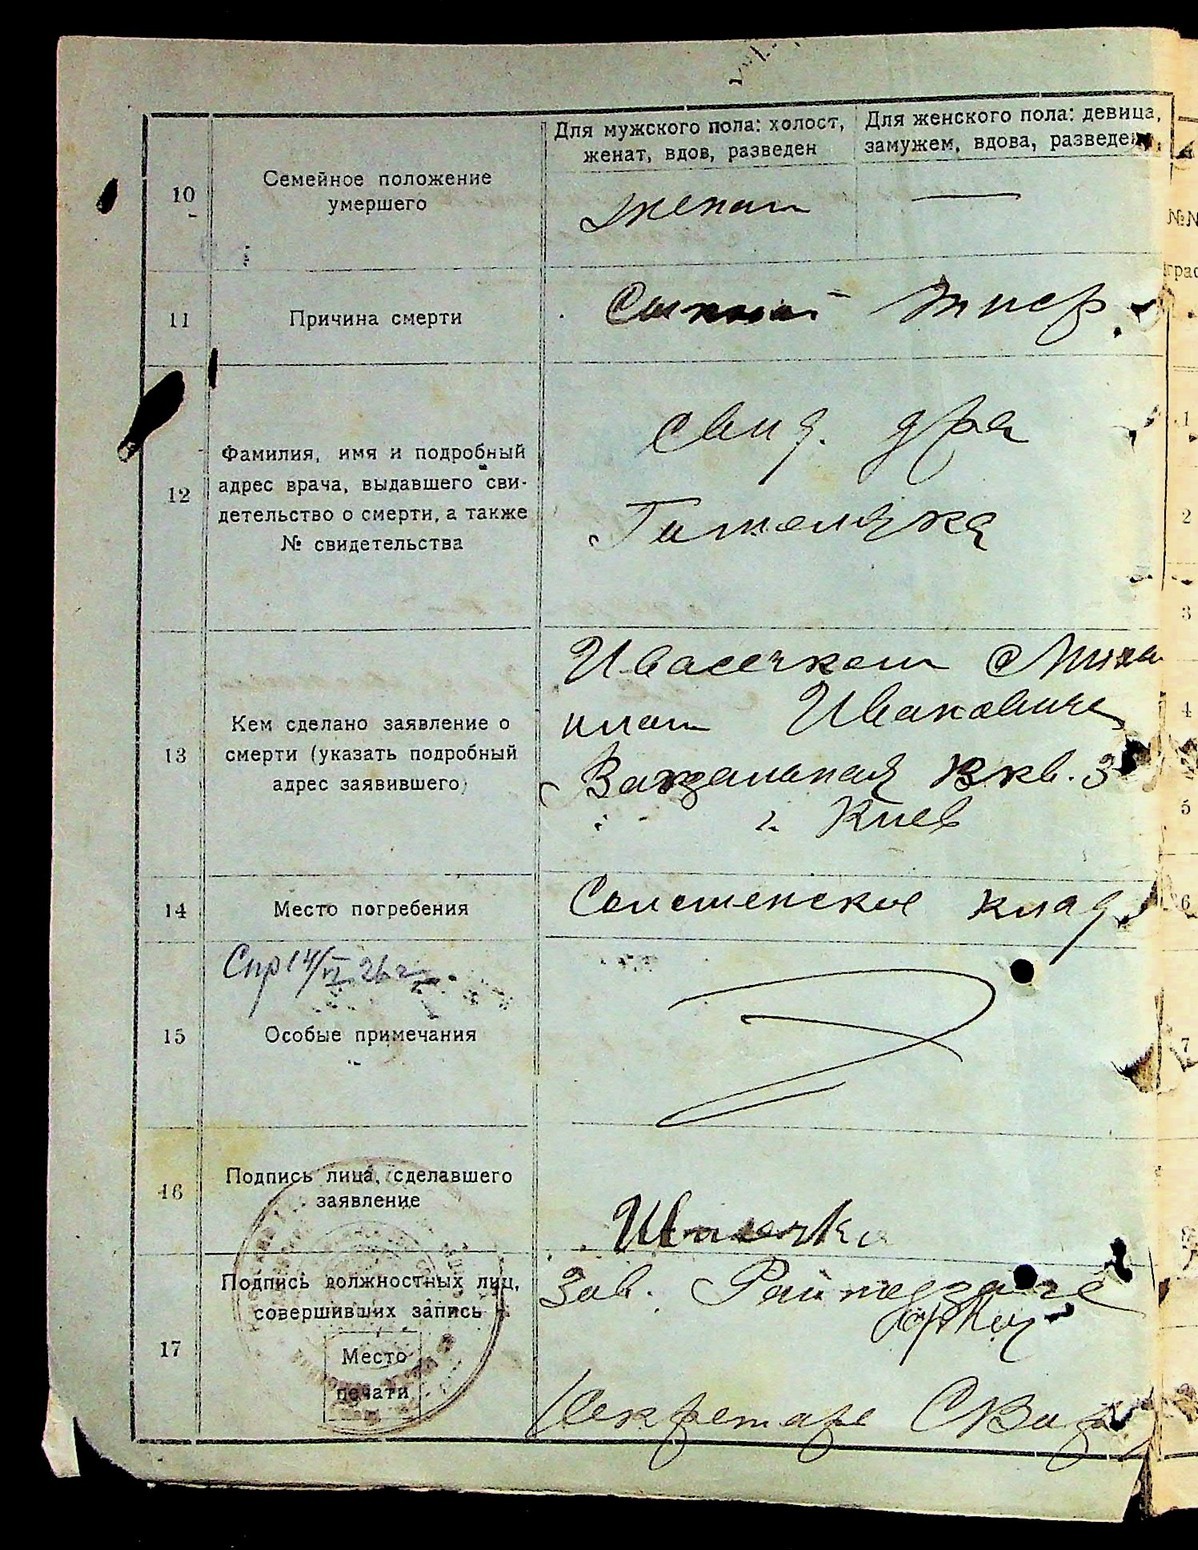 Для мужского пола: холост,
женат, вдов, разведен
Для женского пола: девица,
замужем, вдова, разведена
10
Семейное положение
умершего
женат
—
11
Причина смерти
Сыпной тиф.
12
Фамилия, имя и подробный
адрес врача, выдавшего сви-
детельство о смерти, а также
№ свидетельства
свид. д-ра
13
Кем сделано заявление о
смерти (указать подробный
адрес заявившего)
Ивасечком
Ивановичем
Вокзальная кв. 3
г. Киев
14
Место погребения
Соломенское клад.
Спр 14/VI 26 г.
15
Особые примечания
16
Подпись лица, сделавшего
заявление
17
Подпись должностных лиц,
совершивших запись
Место
печати
Зав.
Секретарь
№№
1
2
3
4
5
6
7